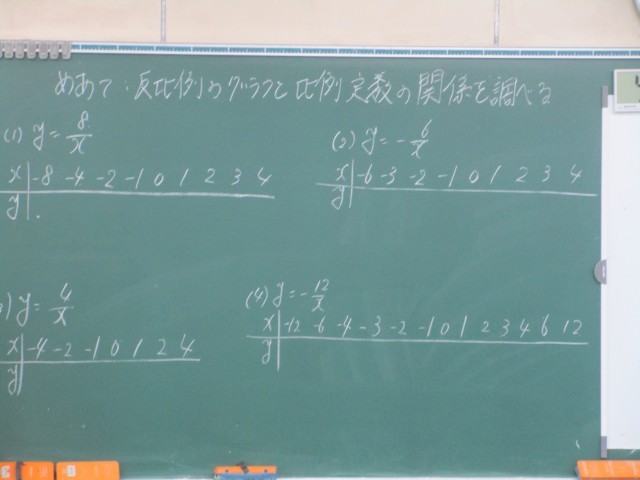 めあて：反比例のグラフと比例定数の関係を調べる
(1) y = 8/x
x -8 -4 -2 -1 0 1 2 3 4
y
(2) y = -6/x
x -6 -3 -2 -1 0 1 2 3 4
y
) y = 4/x
x -4 -2 -1 0 1 2 4
y
(4) y = -12/x
x -12 -6 -4 -3 -2 -1 0 1 2 3 4 6 12
y